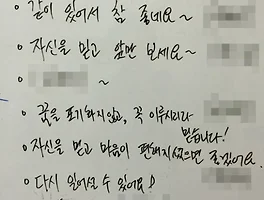 • 같이 있어서 참 좋네요~
• 자신을 믿고 앞만 보세요~
• ~
• 꿈을 포기하지 않고, 꼭 이루시리라
믿습니다!
• 자신을 믿고 마음이 편해지셨으면 좋겠어요.
• 다시 일어설 수 있어요!